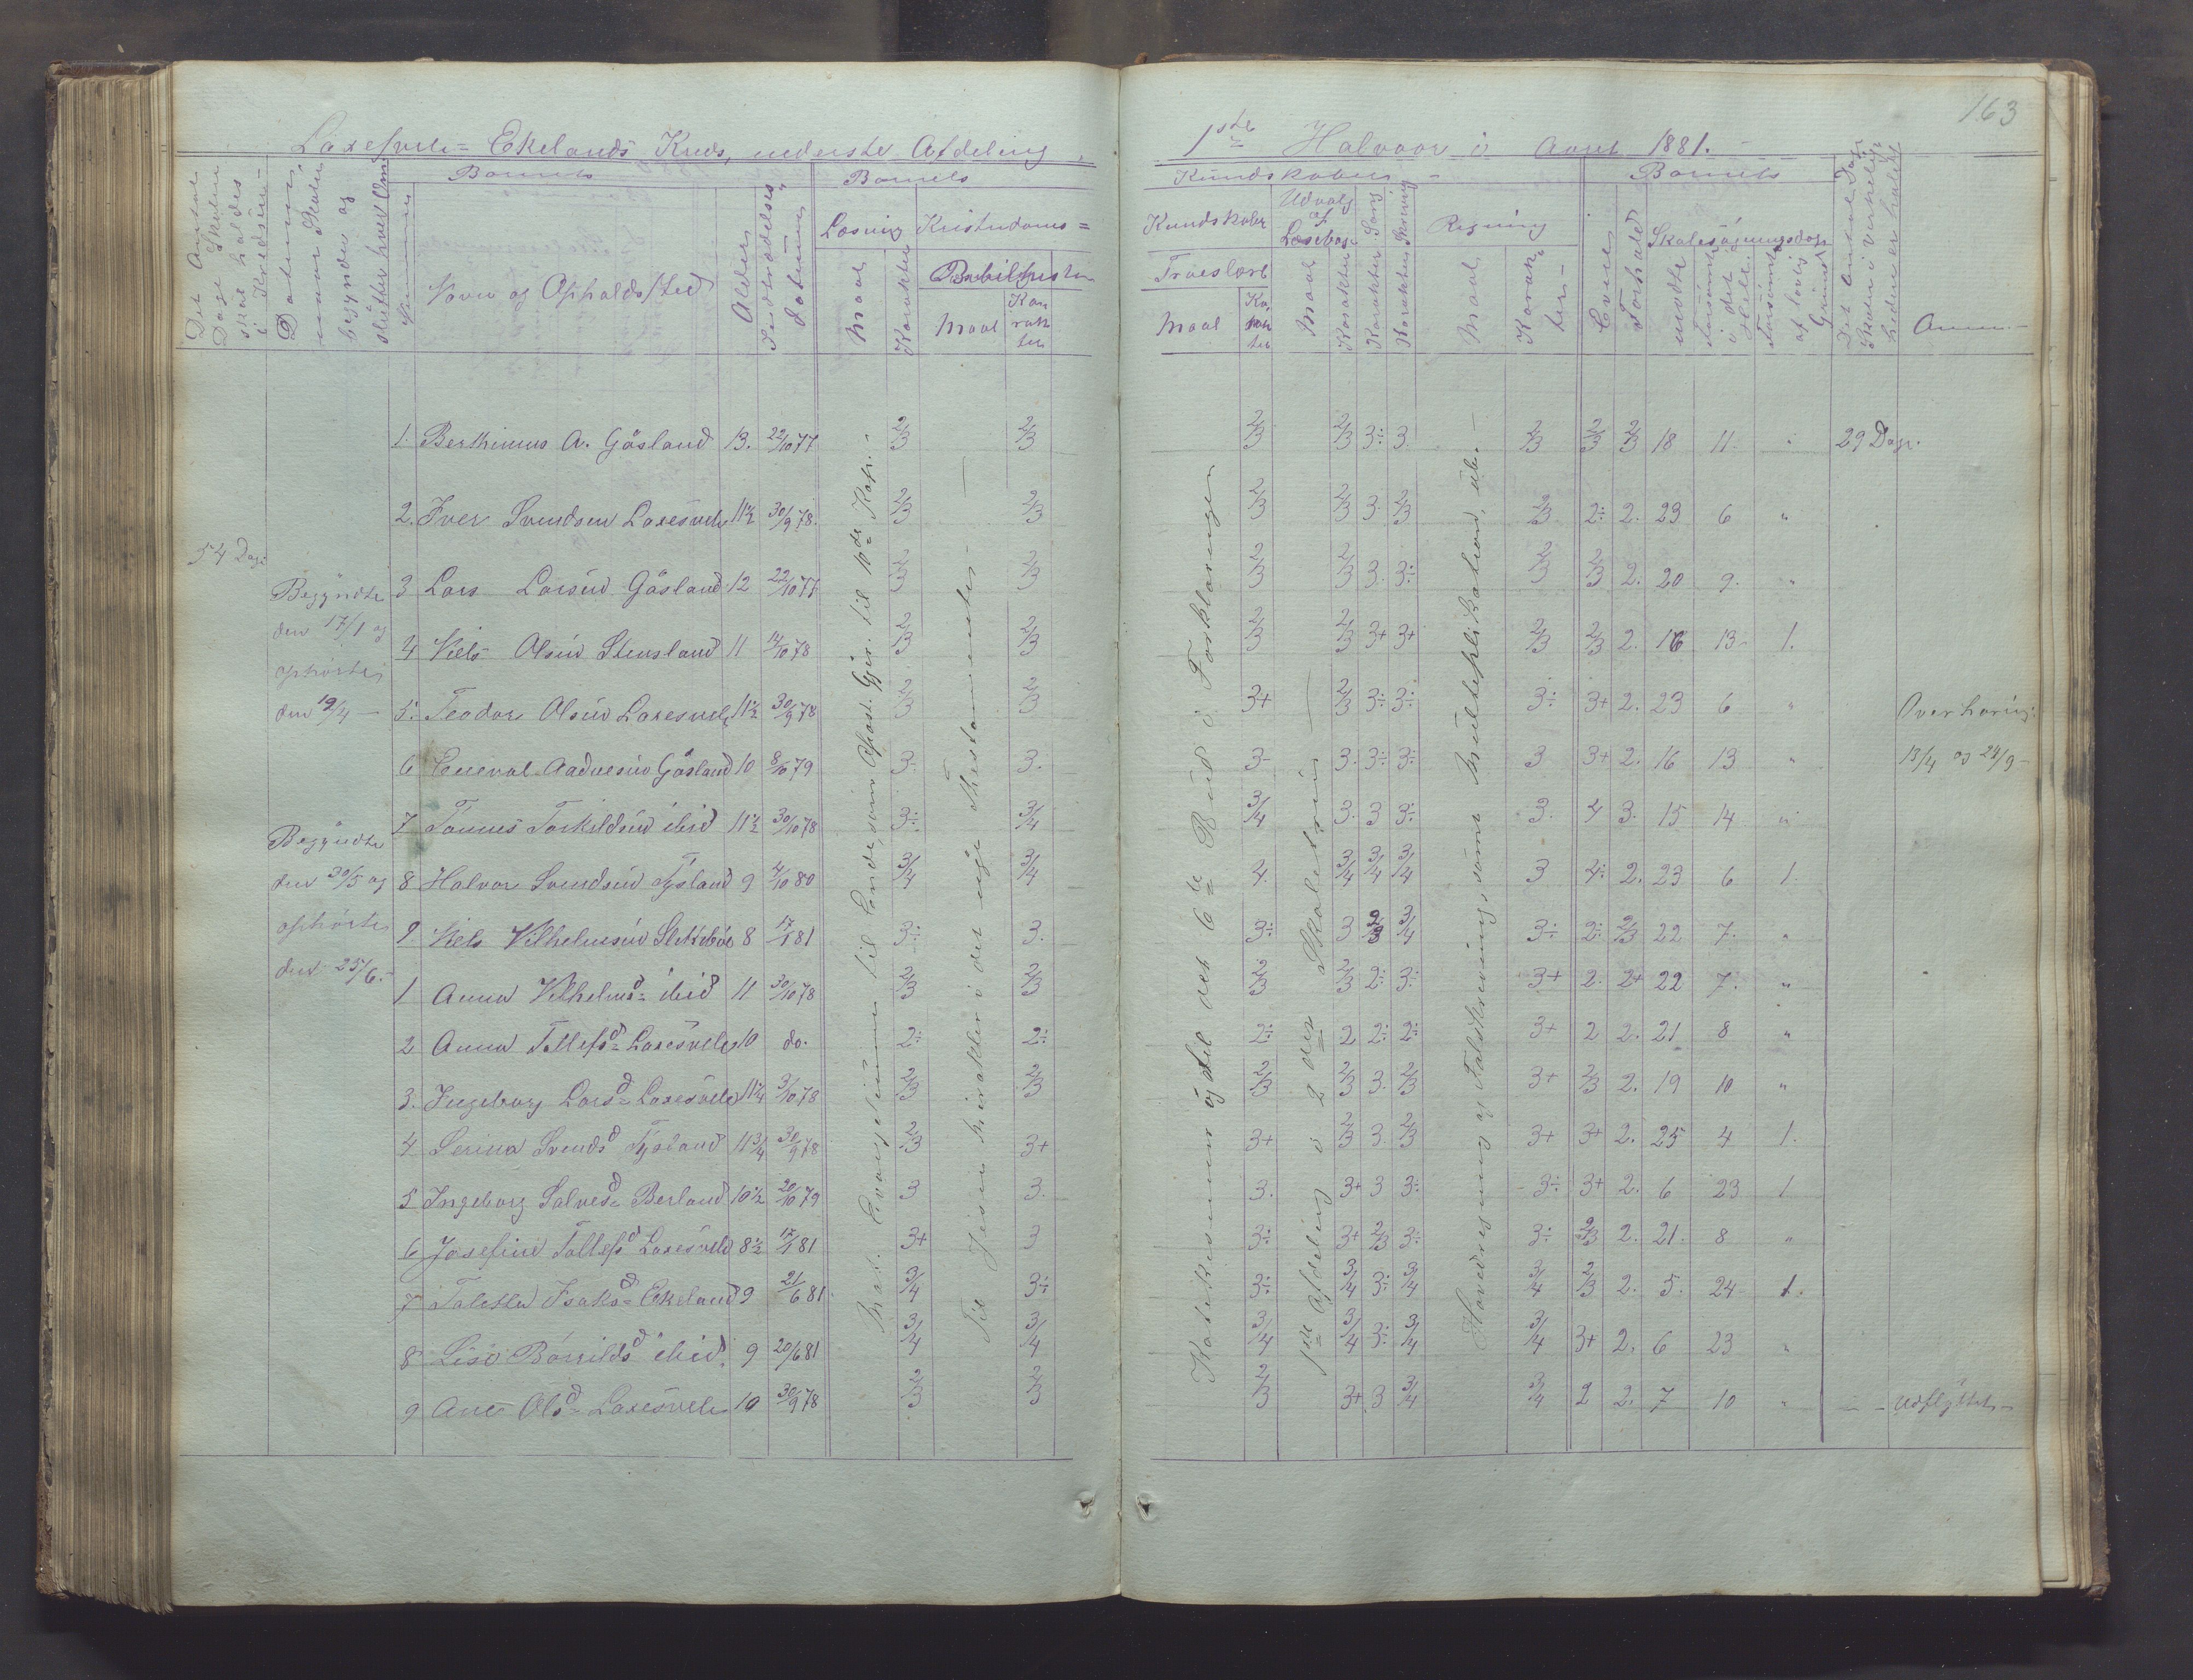 163
Laxesvele= Ekelands Kreds, nederste Afdeling,
1ste Halvaar i Aaret 1881.
Det Antal Dage Skolen skal holdes i Kredsen
Datum, naar Skolen begynder og slutter hver Om
Barnets
Nummer
Navn og Opholds/sted
Alder
Indtrædelses Datum
Barnets
Læsning
Maal
Karakter
Kristendoms=
Bibelhistorie
Maal
Karakter
Kundskaber
Kundskaber
Troeslære
Maal
Karakter
Udvalg af Læsebog
Maal
Karakter
Sang
Karakter
Skrivning
Karakter
Regning
Maal
Karakter
Barnets
Evner
Forhold
Skolesøgningsdage
mødte
Forsømte i det Hele
Forsømte af lovlig Grund
Det Antal Dage Skolen i virkeligheden er holdt
Anm.
54 Dage
Begyndte
den 17/1 og
ophørte
den 19/4 —
Begyndte
den 30/5 og
ophørte
den 25/6.
Mat. Evangelium til Ende, samt Apost. Gjer. til 10de Kap.
Til Jesu mirakler i det nye Testamente
Katekismen og til det 6te Bud i Forklaringen
1ste Afdeling i 2den Skoletrin
Hovedregning og Talskrivning, samt Multeplikation, ub.
1. Berthinius A. Gåsland 13. 22/10 77 2/3 2/3 2/3 2/3 3÷ 3. 2/3 2/3 2/3 18 11. " 29 Dage.
2. Iver Svendsen Laxesvele 11½ 30/9 78. 2/3 2/3 2/3 2/3 3. 2/3 2/3 2÷ 2. 23 6 "
3 Lars Larsen Gåsland 12 22/10 77 2/3 2/3 2/3 2/3 3. 3÷ 2/3 2/3 2. 20 9. "
4 Niels Olsen Stensland 11 14/10 78 2/3 2/3 2/3 2/3 3+ 3+ 2/3 2/3 2. 16 13 1.
5. Teodor Olsen Laxesvele 11½ 30/9 78 2/3 2/3 3+ 2/3 3÷ 3÷ 3÷ 3+ 2. 23 6 " Overhøring
6 Eneval Aadnesen Gåsland 10 8/10 79 3. 3. 3- 3. 3÷ 3÷ 3 3+ 2. 16 13 " 13/4 og 24/9
7 Tønnes Torkildsen ibid 11½ 30/10 78 3÷ 3/4 3/4 3. 3 3÷ 3. 4 3. 15 14 "
8 Halvor Svendsen Tysland 9 4/10 80 3/4 3/4 4. 3/4 3/4 3/4 3 4÷ 2. 23 6 1.
9. Niels Vilhelmsen Slettebøe 8 17/1 81 3÷ 3. 3÷ 3 2/3 3/4 3÷ 2÷ 2/3 22 7. "
1 Anna Vilhelmsd= ibid 11 30/10 78 2/3 2/3 2/3 2/3 2÷ 3÷ 3+ 2. 2+ 22 7. "
2 Anna Tollefsd= Laxesvele 10 do. 2÷ 2÷ 2÷ 2 2÷ 2÷ 3+ 2 2. 21 8 "
3. Ingeborg Larsd= Laxesvele 11¼ 3/10 78 2/3 2/3 2/3 2/3 3. 2/3 3+ 2/3 2. 19 10 "
4 Serina Svendsd Tysland 11¾ 30/9 78 2/3 3+ 3+ 2/3 3. 2/3 3+ 3+ 2. 25 4 1.
5 Ingeborg Salvesd= Berland 10½ 20/10 79 3 3. 3. 3+ 3 3÷ 3÷ 3+ 2. 6 23 1
6 Josefine Tollefsd Laxesvele 8½ 17/1 81 3+ 3 3÷ 3+ 2/3 3÷ 3÷ 2/3 2. 21. 8 "
7 Taletta Isaksd= Ekeland 9 21/6 81. 3/4 3÷ 3÷ 3/4 3÷ 3/4 3/4 2/3 2. 5. 24 1.
8 Lise Bårrildsd ibid. 9 20/6 81 3/4 3/4 3/4 3/4 3÷ 3/4 3/4 3+ 2. 6 23 "
9 Ane Olsd= Laxesvele 10 30/9 78 2/3 2/3 2/3 3+ 3 3/4 3/4 2 2. 7 10 " Udflyttet